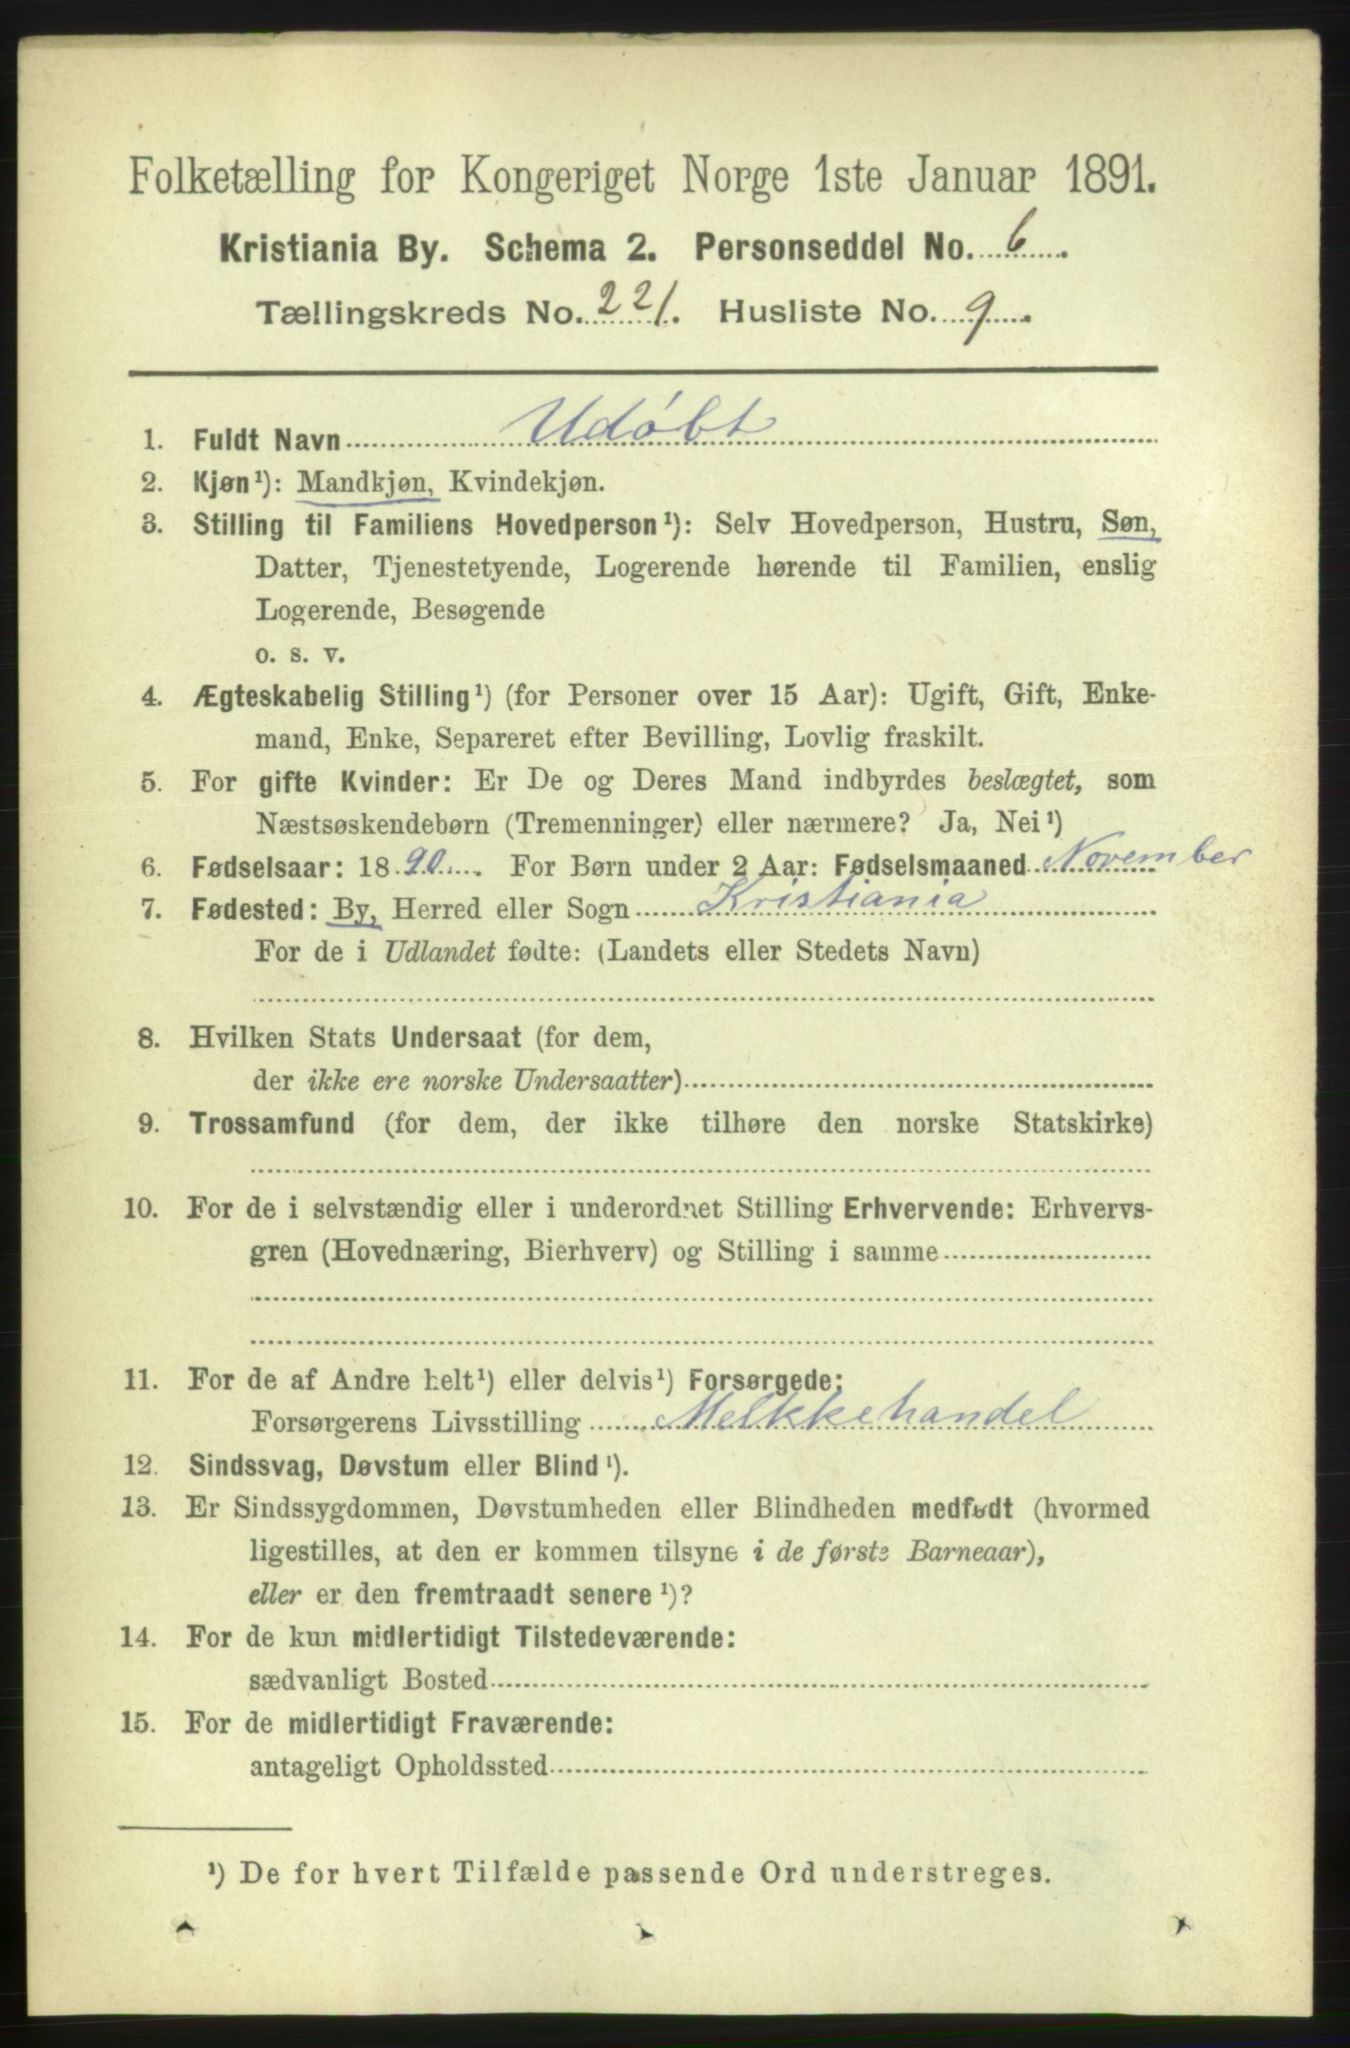 Folketælling for Kongeriget Norge 1ste Januar 1891.
Kristiania By. Schema 2. Personseddel No. 6.
Tællingskreds No. 221. Husliste No. 9.
1. Fuldt Navn Udøbt
2. Kjøn¹): Mandkjøn, Kvindekjøn.
3. Stilling til Familiens Hovedperson¹): Selv Hovedperson, Hustru, Søn,
Datter, Tjenestetyende, Logerende hørende til Familien, enslig
Logerende, Besøgende
o. s. v.
4. Ægteskabelig Stilling¹) (for Personer over 15 Aar): Ugift, Gift, Enke-
mand, Enke, Separeret efter Bevilling, Lovlig fraskilt.
5. For gifte Kvinder: Er De og Deres Mand indbyrdes beslægtet, som
Næstsøskendebørn (Tremenninger) eller nærmere? Ja, Nei¹)
6. Fødselsaar: 1890. For Børn under 2 Aar: Fødselsmaaned November
7. Fødested: By, Herred eller Sogn Kristiania
For de i Udlandet fødte: (Landets eller Stedets Navn)
8. Hvilken Stats Undersaat (for dem,
der ikke ere norske Undersaatter)
9. Trossamfund (for dem, der ikke tilhøre den norske Statskirke)
10. For de i selvstændig eller i underordnet Stilling Erhvervende: Erhvervs-
gren (Hovednæring, Bierhverv) og Stilling i samme
11. For de af Andre helt¹) eller delvis¹) Forsørgede:
Forsørgerens Livsstilling Melkkehandel
12. Sindssvag, Døvstum eller Blind¹).
13. Er Sindssygdommen, Døvstumheden eller Blindheden medfødt (hvormed
ligestilles, at den er kommen tilsyne i de første Barneaar),
eller er den fremtraadt senere¹)?
14. For de kun midlertidigt Tilstedeværende:
sædvanligt Bosted
15. For de midlertidigt Fraværende:
antageligt Opholdssted
¹) De for hvert Tilfælde passende Ord understreges.